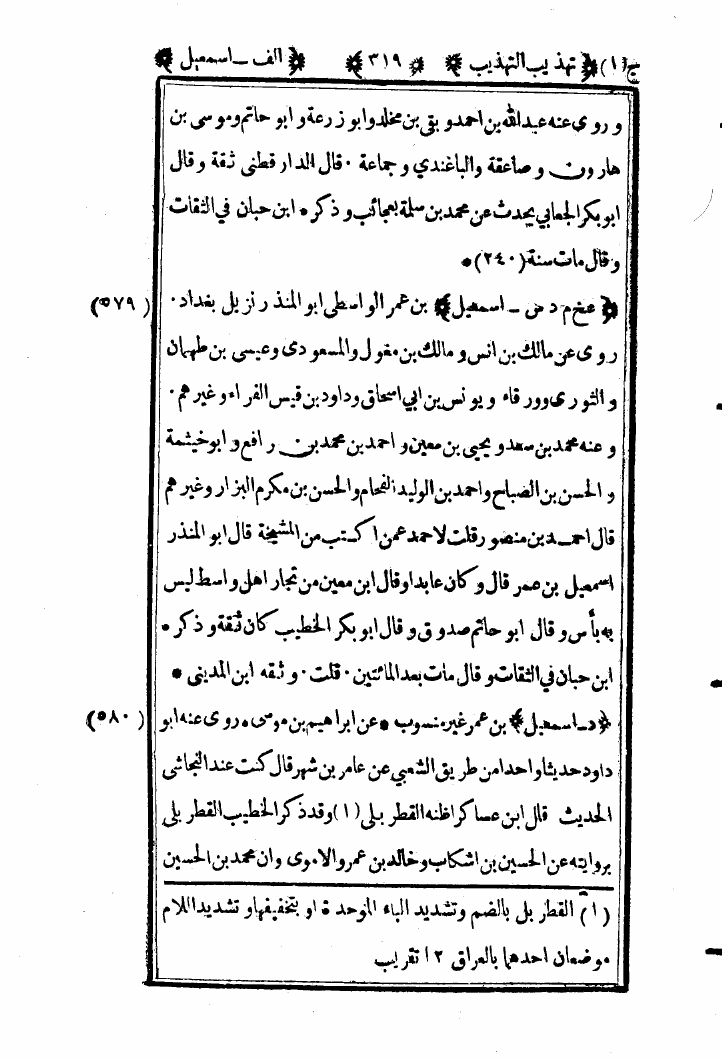 ج(١) ﴿ تهذيب التهذيب ﴾ ﴿ ٣١٩ ﴾ ﴿ الف ـ اسمعيل ﴾
وروى عنه عبدالله بن احمد وبقي بن مخلد وابو زرعة وابو حاتم وموسى بن
هارون وصاعقة والباغندي وجماعة ٠ قال الدارقطني ثقة وقال
ابوبكر الجعابي يحدث عن محمد بن سلمة بعجائب وذكره ابن حبان في الثقات
وقال مات سنة (٢٤٠) *
﴿ عخ م د س ـ اسمعيل ﴾ بن عمر الواسطى ابو المنذر نزيل بغداد ٠ (٥٧٩)
روى عن مالك بن انس ومالك بن مغول والمسعودى وعيسى بن طهمان
والثورى وورقاء ويونس بن ابي اسحاق وداود بن قيس الفراء وغيرهم ٠
وعنه محمد بن سعد ويحيى بن معين واحمد بن محمد بن رافع وابو خيثمة
والحسن بن الصباح واحمد بن الوليد الفحام والحسن بن مكرم البزار وغيرهم
قال احمد بن منصور قلت لاحمد عمن اكتب من المشيخة قال ابو المنذر
اسمعيل بن عمر قال وكان عابدا وقال ابن معين من تجار اهل واسط ليس
به بأس وقال ابو حاتم صدوق وقال ابو بكر الخطيب كان ثقة وذكره
ابن حبان في الثقات وقال مات بعد المائتين ٠ قلت ٠ وثقه ابن المديني *
﴿ د ـ اسمعيل ﴾ بن عمر غير منسوب * عن ابراهيم بن موسى * روى عنه ابو (٥٨٠)
داود حديثا واحدا من طريق الشعبي عن عامر بن شهر قال كنت عند النجاشى
الحديث قال ابن عساكر اظنه القطربلى (١) وقد ذكر الخطيب القطربلى
بروايته عن الحسين بن اشكاب وخالد بن عمرو الاموى وان محمد بن الحسين
(١) القطربل بالضم وتشديد الباء الموحدة او بتخفيفها وتشديد اللام
موضعان احدهما بالعراق ١٢ تقريب